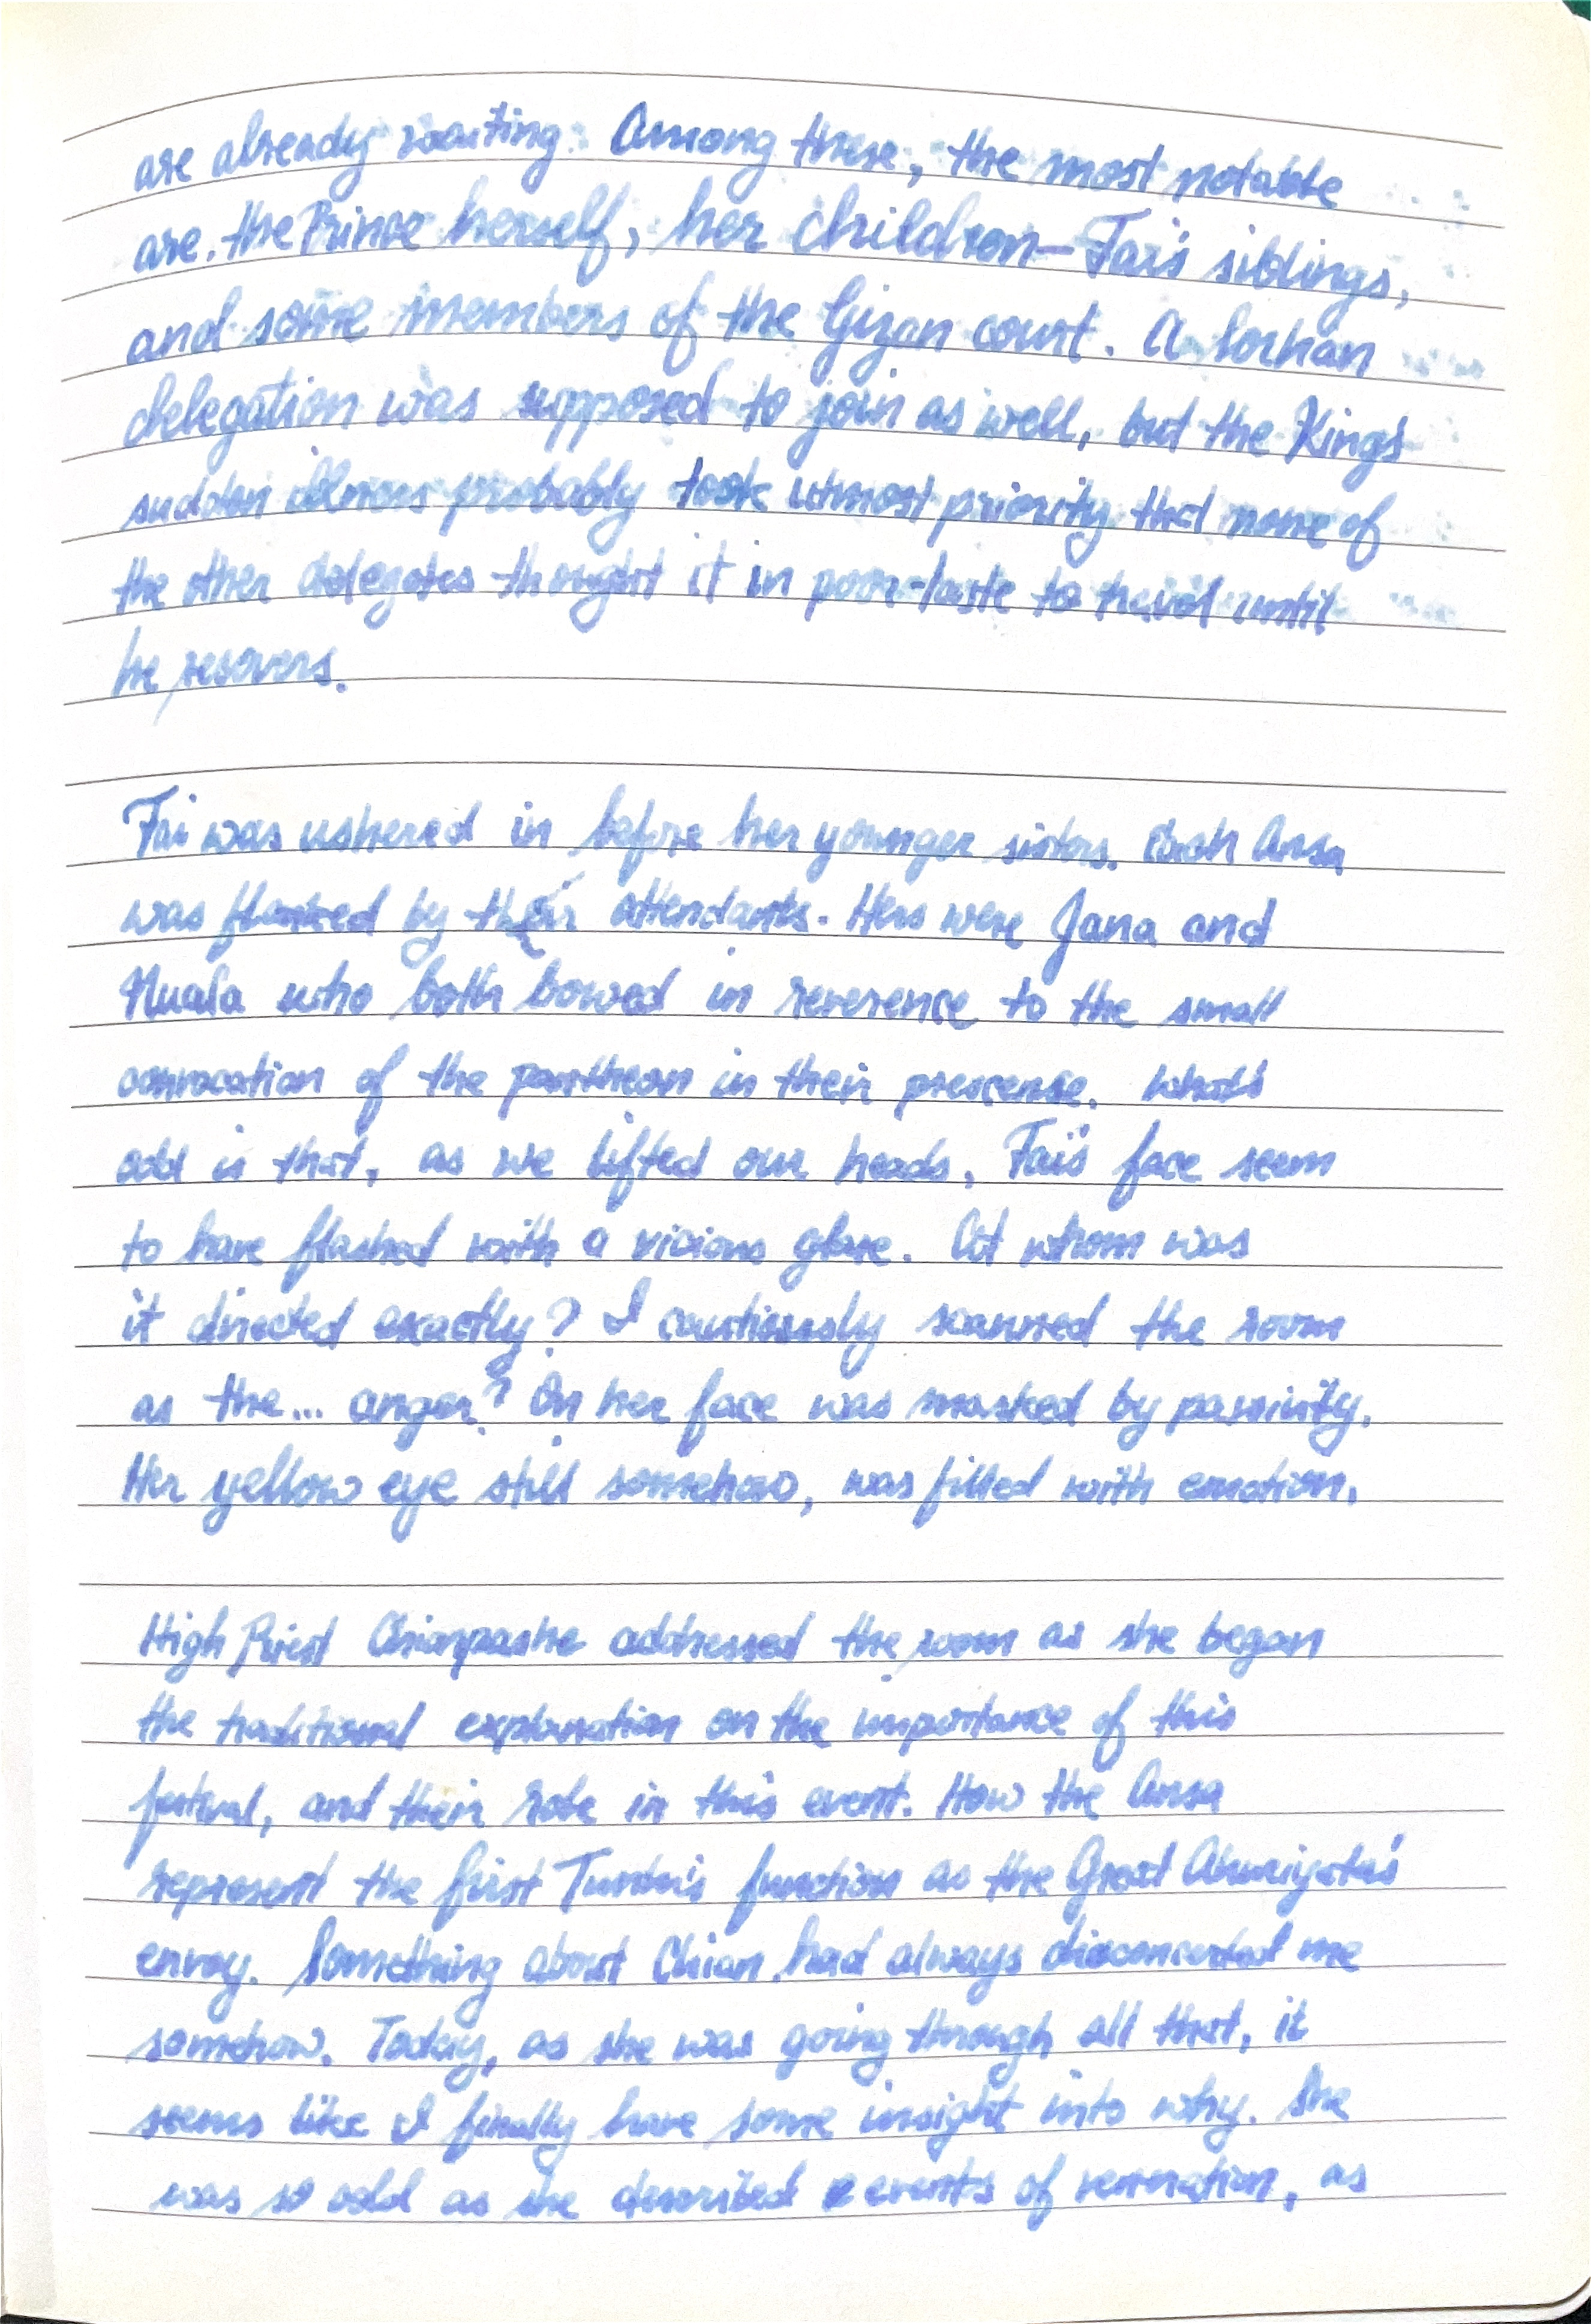 are already waiting. Among these, the most notable
are the Prince herself, her children—Fai's siblings,
and some members of the Gizan court. A Lorhan
delegation was supposed to join as well, but the King's
sudden illness probably took utmost priority that none of
the other delegates thought it in poor-taste to travel until
he recovers.
Fai was ushered in before her younger sisters. Each Ansa
was flanked by their attendants. Hers were Jana and
Nuala who both bowed in reverence to the small
convocation of the pantheon in their prescense. What's
odd is that, as we lifted our heads, Fai's face seem
to have flashed with a vicious glare. At whom was
it directed exactly? I cautiously scanned the room
as the... anger? On her face was masked by passivity.
Her yellow eye still somehow, was filled with emotion.
High Priest Chianpashe addressed the room as she began
the traditional explanation on the importance of this
festival, and their role in this event. How the Ansa
represent the first function as the Great
envoy. Something about Chian had always disconcerted me
somehow. Today, as she was going through all that, it
seems like I finally have some insight into why. She
was so odd as she described events of veneration, as